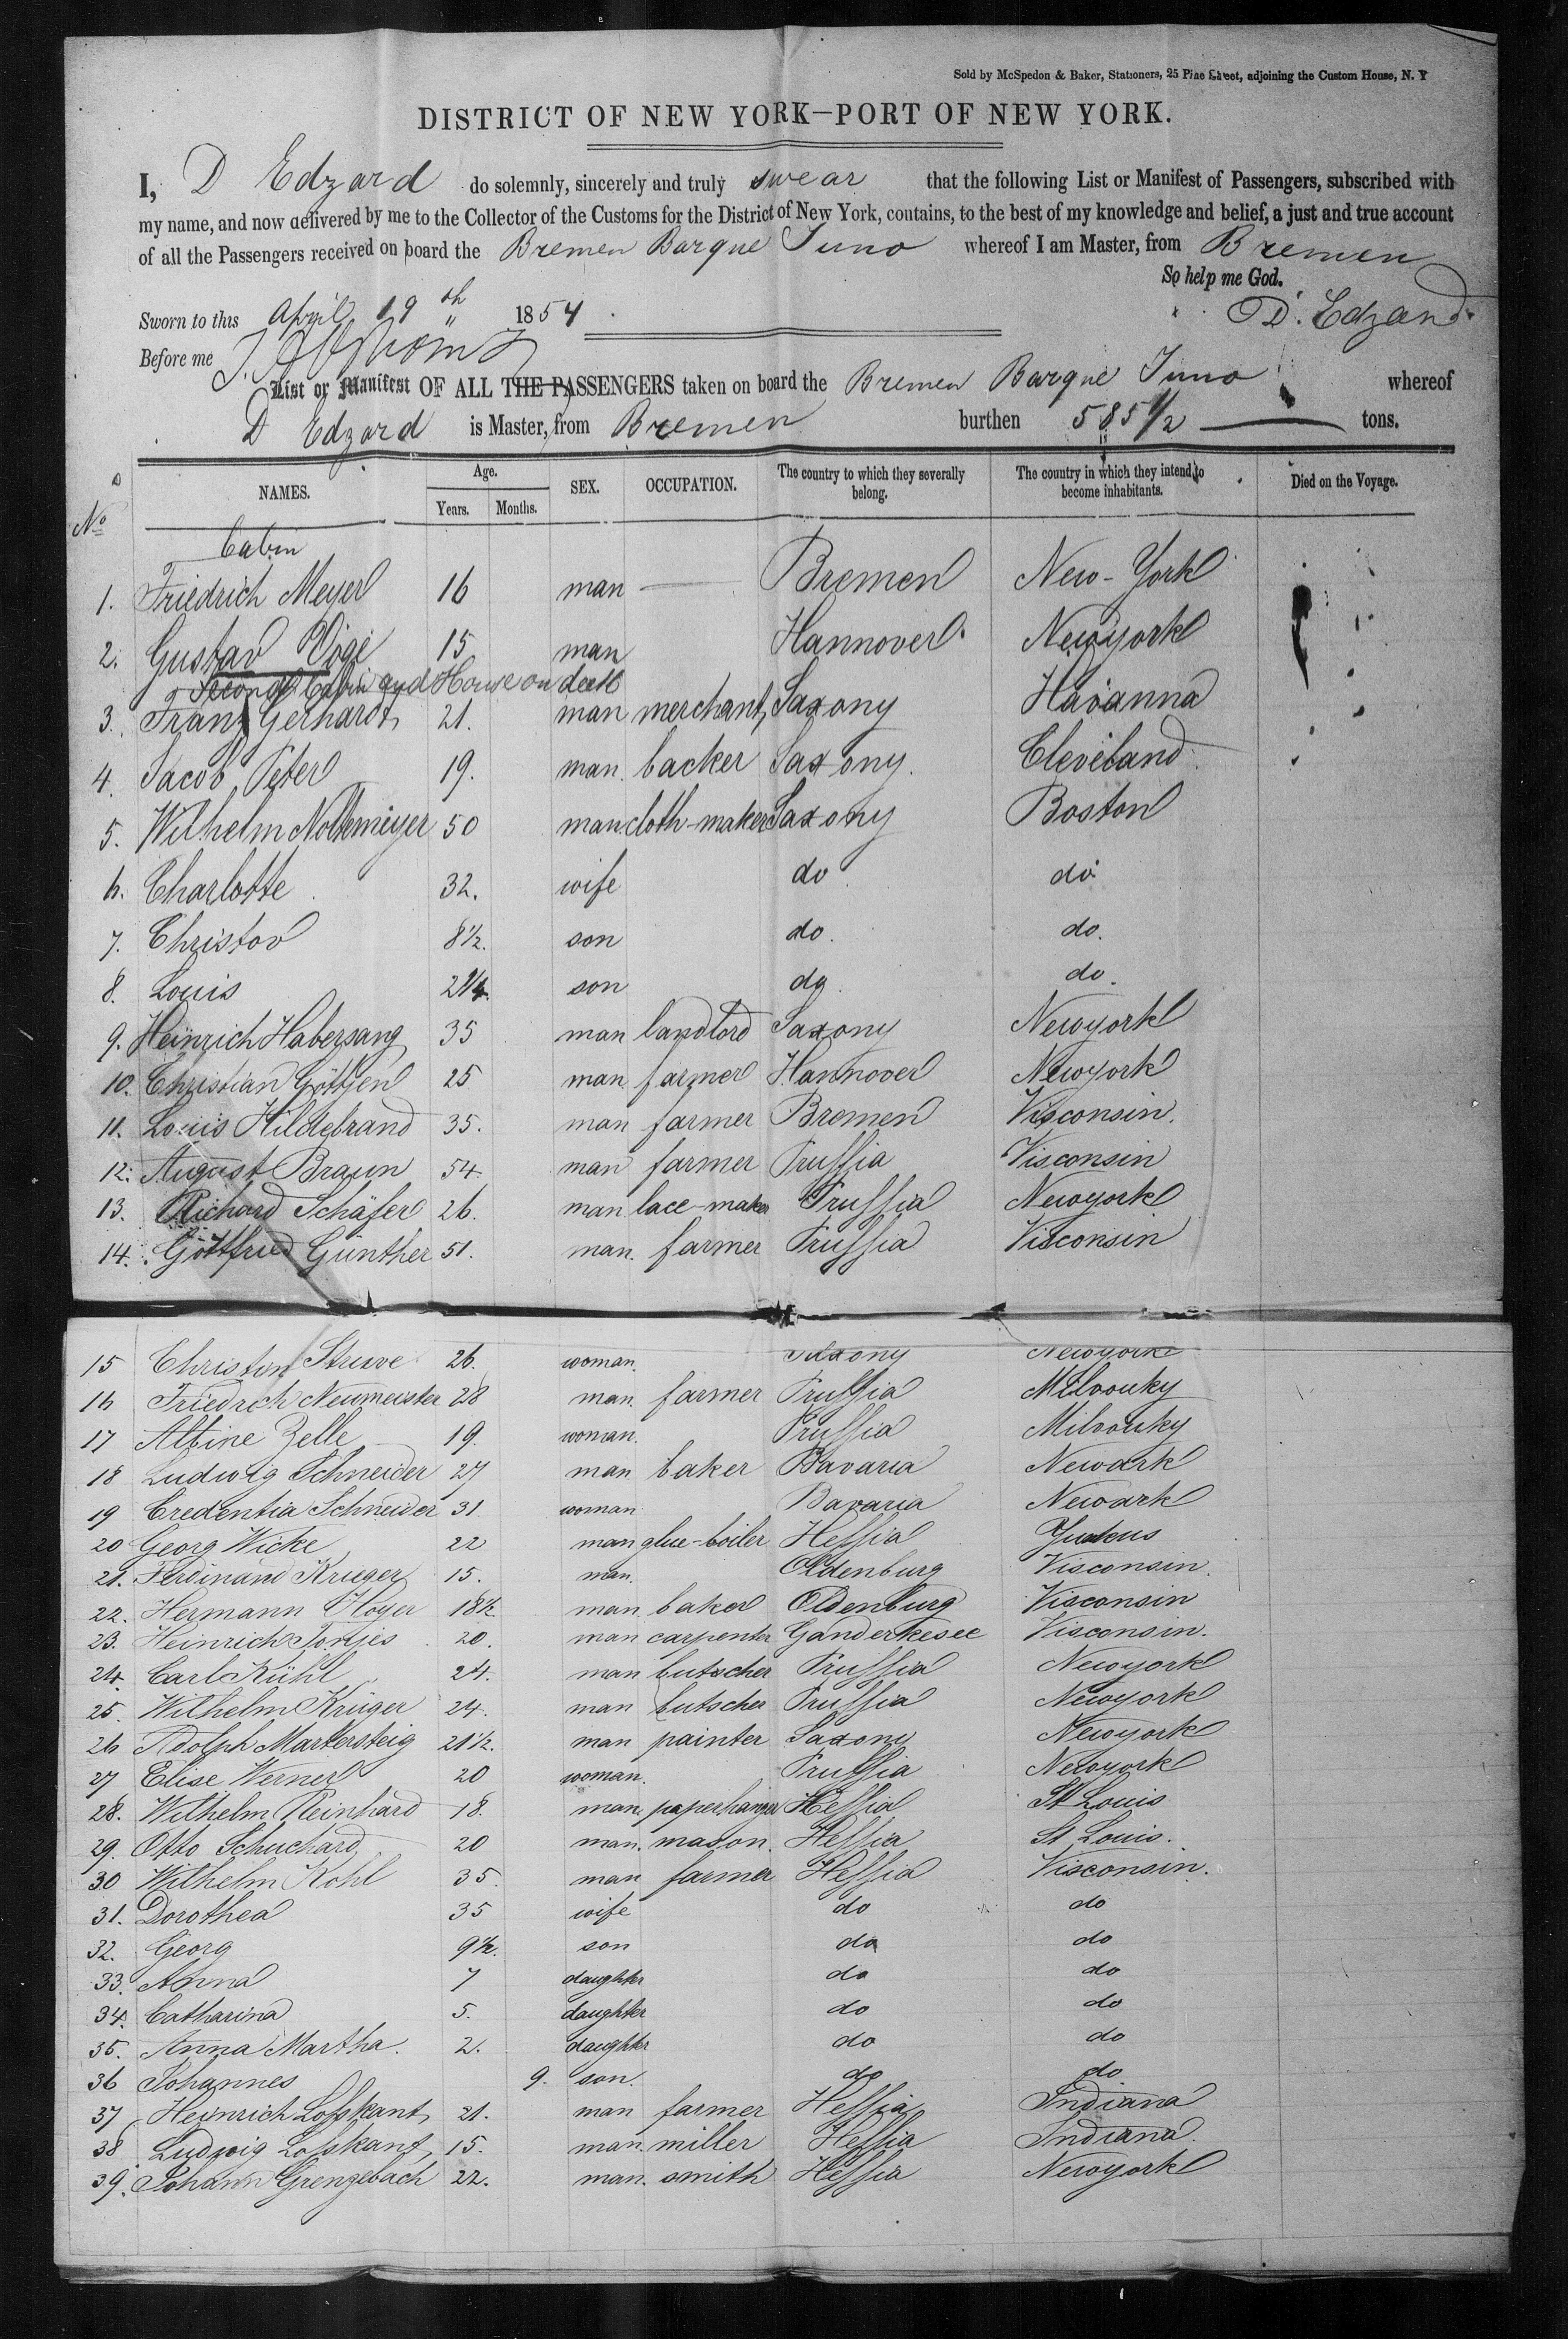 Sold by McSpedon & Baker, Stationers, 25 Pine Street, adjoining the Custom House, N. Y
DISTRICT OF NEW YORK—PORT OF NEW YORK.
I, D Edzard do solemnly, sincerely and truly swear that the following List or Manifest of Passengers, subscribed with
my name, and now delivered by me to the Collector of the Customs for the District of New York, contains, to the best of my knowledge and belief, a just and true account
of all the Passengers received on board the Bremen Barque Juno whereof I am Master, from Bremen
So help me God.
Sworn to this April 19th 1854. D. Edzard
Before me
List or Manifest OF ALL THE PASSENGERS taken on board the Bremen Barque Juno whereof
D Edzard is Master, from Bremen burthen 585 1/2 tons.
No NAMES. Age. Years. Months. SEX. OCCUPATION. The country to which they severally belong. The country in which they intend to become inhabitants. Died on the Voyage.
Cabin
1. Friedrich Meyer 16 man — Bremen New-York
2. Gustav Vöge 15 man Hannover. Newyork
Second Cabin and House on deck
3. Franz Gerhardt 21. man merchant, Saxony Havanna
4. Jacob Peter 19. man. backer Saxony. Cleveland
5. Wilhelm Noltemeyer 50 man. cloth-maker Saxony Boston
6. Charlotte 32. wife do do
7. Christov 8 1/2. son do. do.
8. Louis 2 1/4. son do. do.
9. Heinrich Habersang 35 man landlord Saxony Newyork
10. Christian Göttjen 25 man farmer Hannover Newyork
11. Louis Hildebrand 35. man farmer Bremen Visconsin.
12. August Braun 54. man farmer Prussia Visconsin
13. Richard Schäfer 26. man lace-maker Prussia Newyork
14. Gottfried Günther 51. man. farmer Prussia Visconsin
15 Christon Struve 26. woman. Saxony Newyork
16 Friedrich Neumeister 28 man. farmer Prussia Milvouky
17 Albine Zelle 19. woman. Prussia Milvouky
18 Ludwig Schneider 27 man baker Bavaria Newark
19 Credentia Schneider 31. woman Bavaria Newark
20 Georg Wicke 22 man glue-boiler Hessia
21. Ferdinand Krieger 15. man. Oldenburg Visconsin.
22. Hermann Hoyer 18 1/2 man baker Oldenburg Visconsin
23. Heinrich Tonjes 20. man carpenter Ganderkesee Visconsin.
24. Carl Kühl 24. man butscher Prussia Newyork
25. Wilhelm Krüger 24. man butscher Prussia Newyork
26 Adolph Martersteig 21 1/2. man painter Saxony Newyork
27 Elise Werner 20 woman. Prussia Newyork
28. Wilhelm Reinhard 18. man. paperhanger Hessia St Louis
29. Otto Schuchard 20 man. mason. Hessia St Louis.
30 Wilhelm Kohl 35. man farmer Hessia Visconsin.
31. Dorothea 35 wife do do
32. Georg 9 1/2. son do do
33. Anna 7 daughter do do
34. Catharina 5. daughter do do
35. Anna Martha. 2. daughter do do
36 Johannes 9. son. do do.
37 Heinrich Losskant 21. man farmer Hessia Indiana
38 Ludwig Losskant 15. man. miller Hessia Indiana.
39. Johann Grenzebach 22. man. smith Hessia Newyork